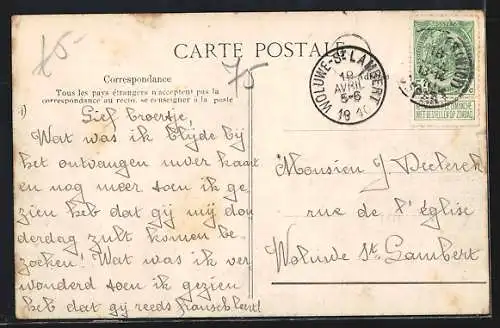 CARTE POSTALE
75-
75
Correspondance
Tous les pays étrangers n'acceptent pas la
correspondance au recto, se renseigner à la poste
WOLUWE-St LAMBERT
18
AVRIL
5-6
1910
NIET BESTELLEN OP ZONDAG
Lief broertje,
Wat was ik blijde bij
het ontvangen uwer kaart
en nog meer toen ik ge
zien heb dat gij mij don
derdag zult komen be-
zoeken! Wat was ik ver
wonderd toen ik gezien
heb dat gij reeds fransch leert!
Monsieur J Declerck
rue de l'église
Woluwe St. Lambert